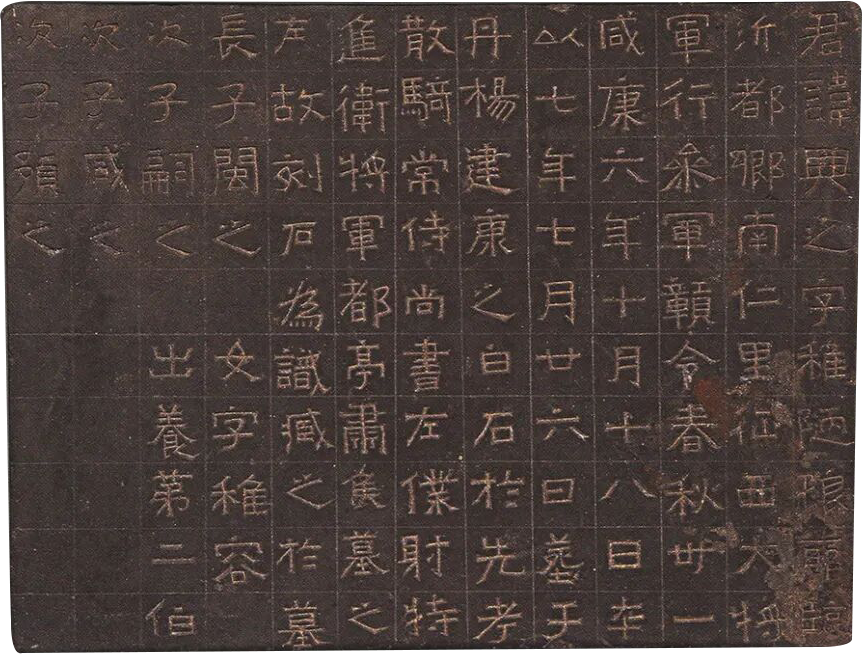 君諱興之字稚陋琅
沂都鄉南仁里征西大將
軍行參軍贛令春秋卅一
咸康六年十月十八日卒
以七年七月廿六日葬于
丹楊建康之白石於先考
散騎常侍尚書左僕射特
進衛將軍都亭肅侯墓之
左故刻石為識臧之於墓
長子閩之 女字稚容
次子嗣之 出養第二伯
次子咸之
次子預之